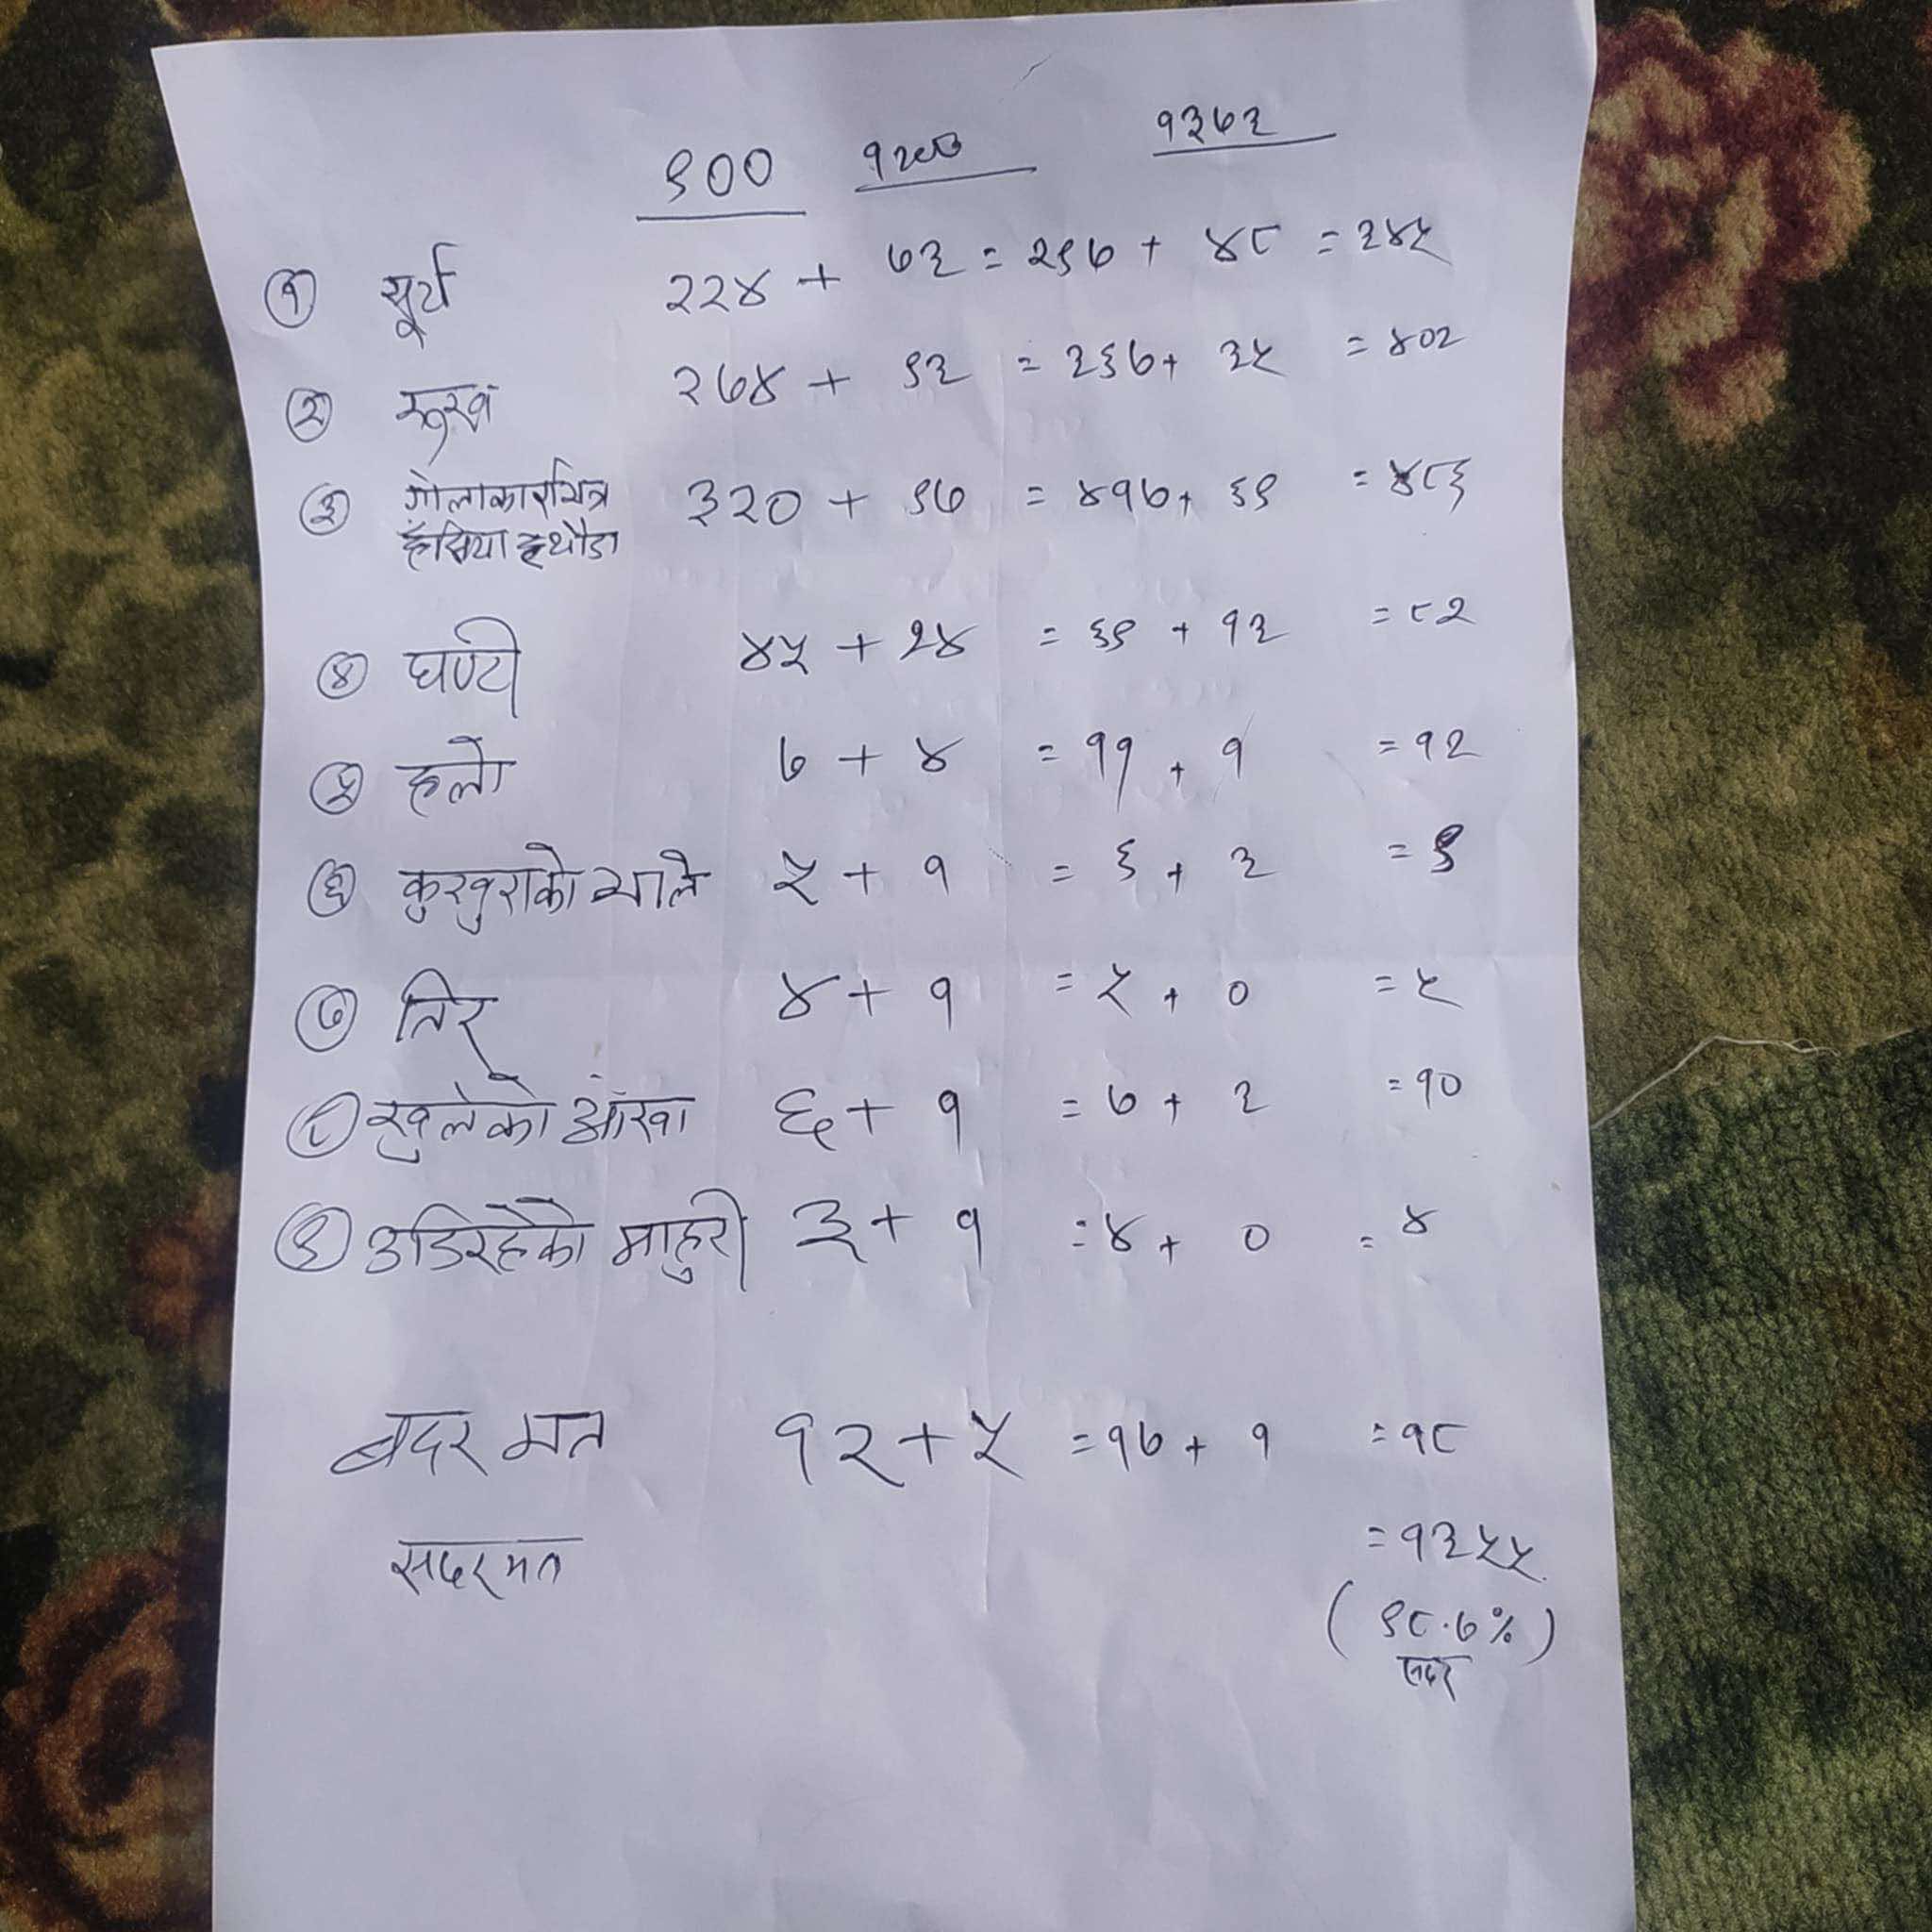 ९०० १२०० १३७३
① सूर्य २२४ + ७३ = २९७ + ४८ = ३४५
② रूख २७४ + ९३ = ३६७ + ३५ = ४०२
③ गोलाकारभित्र हँसिया हथौडा ३२० + ९७ = ४१७ + ६९ = ४८६
④ घण्टी ४५ + २४ = ६९ + १३ = ८२
⑤ हलो ७ + ४ = ११ + १ = १२
⑥ कुखुराको भाले ५ + १ = ६ + ३ = ९
⑦ तिर ४ + १ = ५ + ० = ५
⑧ खुलेको आँखा ६ + १ = ७ + ३ = १०
⑨ उडिरहेको माहुरी ३ + १ = ४ + ० = ४
बदर मत १२ + ५ = १७ + १ = १८
सदर मत = १३५५
(९८.७%)
सदर